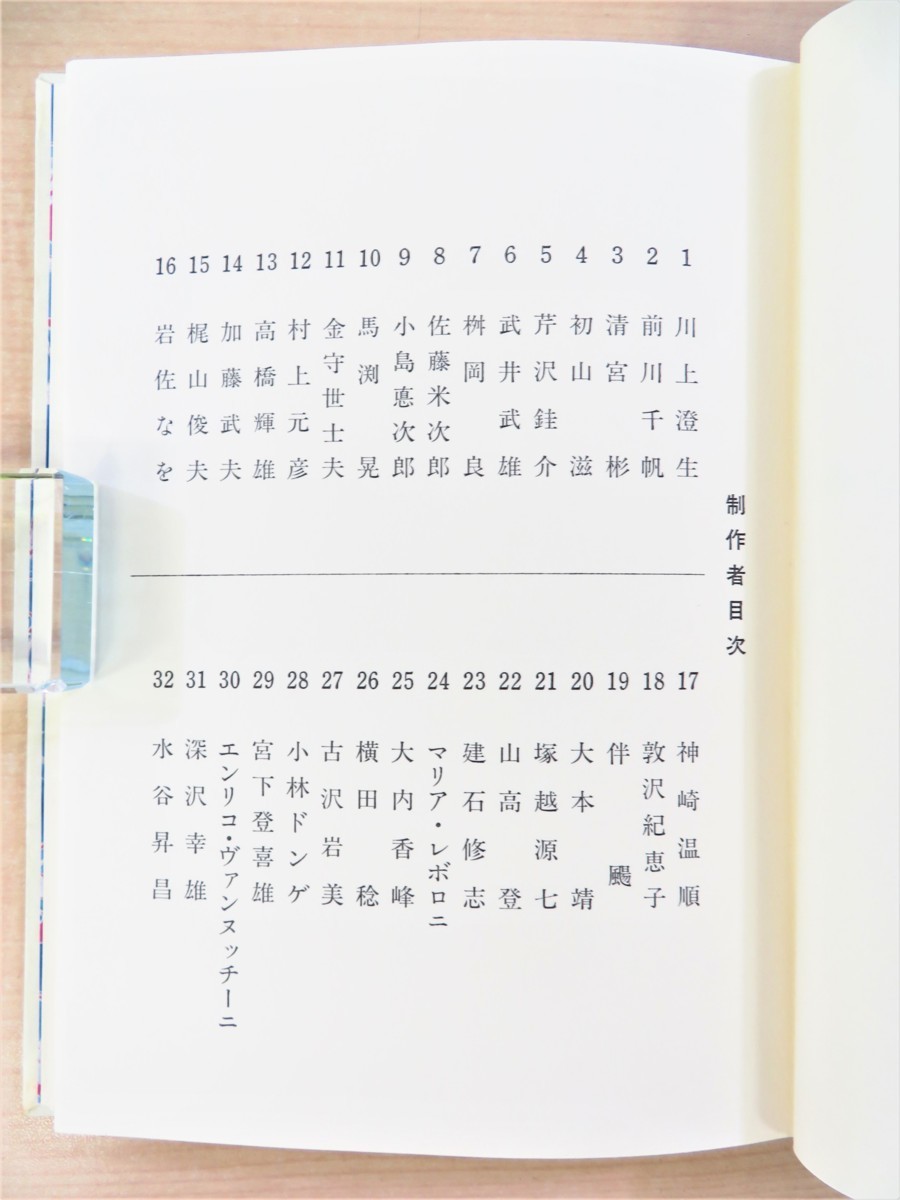 制作者目次
1 川上澄生
2 前川千帆
3 清宮彬
4 初山滋
5 芹沢銈介
6 武井武雄
7 桝岡良
8 佐藤米次郎
9 小島悳次郎
10 馬渕晃
11 金守世士夫
12 村上元彦
13 高橋輝雄
14 加藤武夫
15 梶山俊夫
16 岩佐なを
17 神崎温順
18 敦沢紀恵子
19 伴颺
20 大本靖
21 塚越源七
22 山高登
23 建石修志
24 マリア・レボロニ
25 大内香峰
26 横田稔
27 古沢岩美
28 小林ドンゲ
29 宮下登喜雄
30 エンリコ・ヴァンヌッチーニ
31 深沢幸雄
32 水谷昇昌